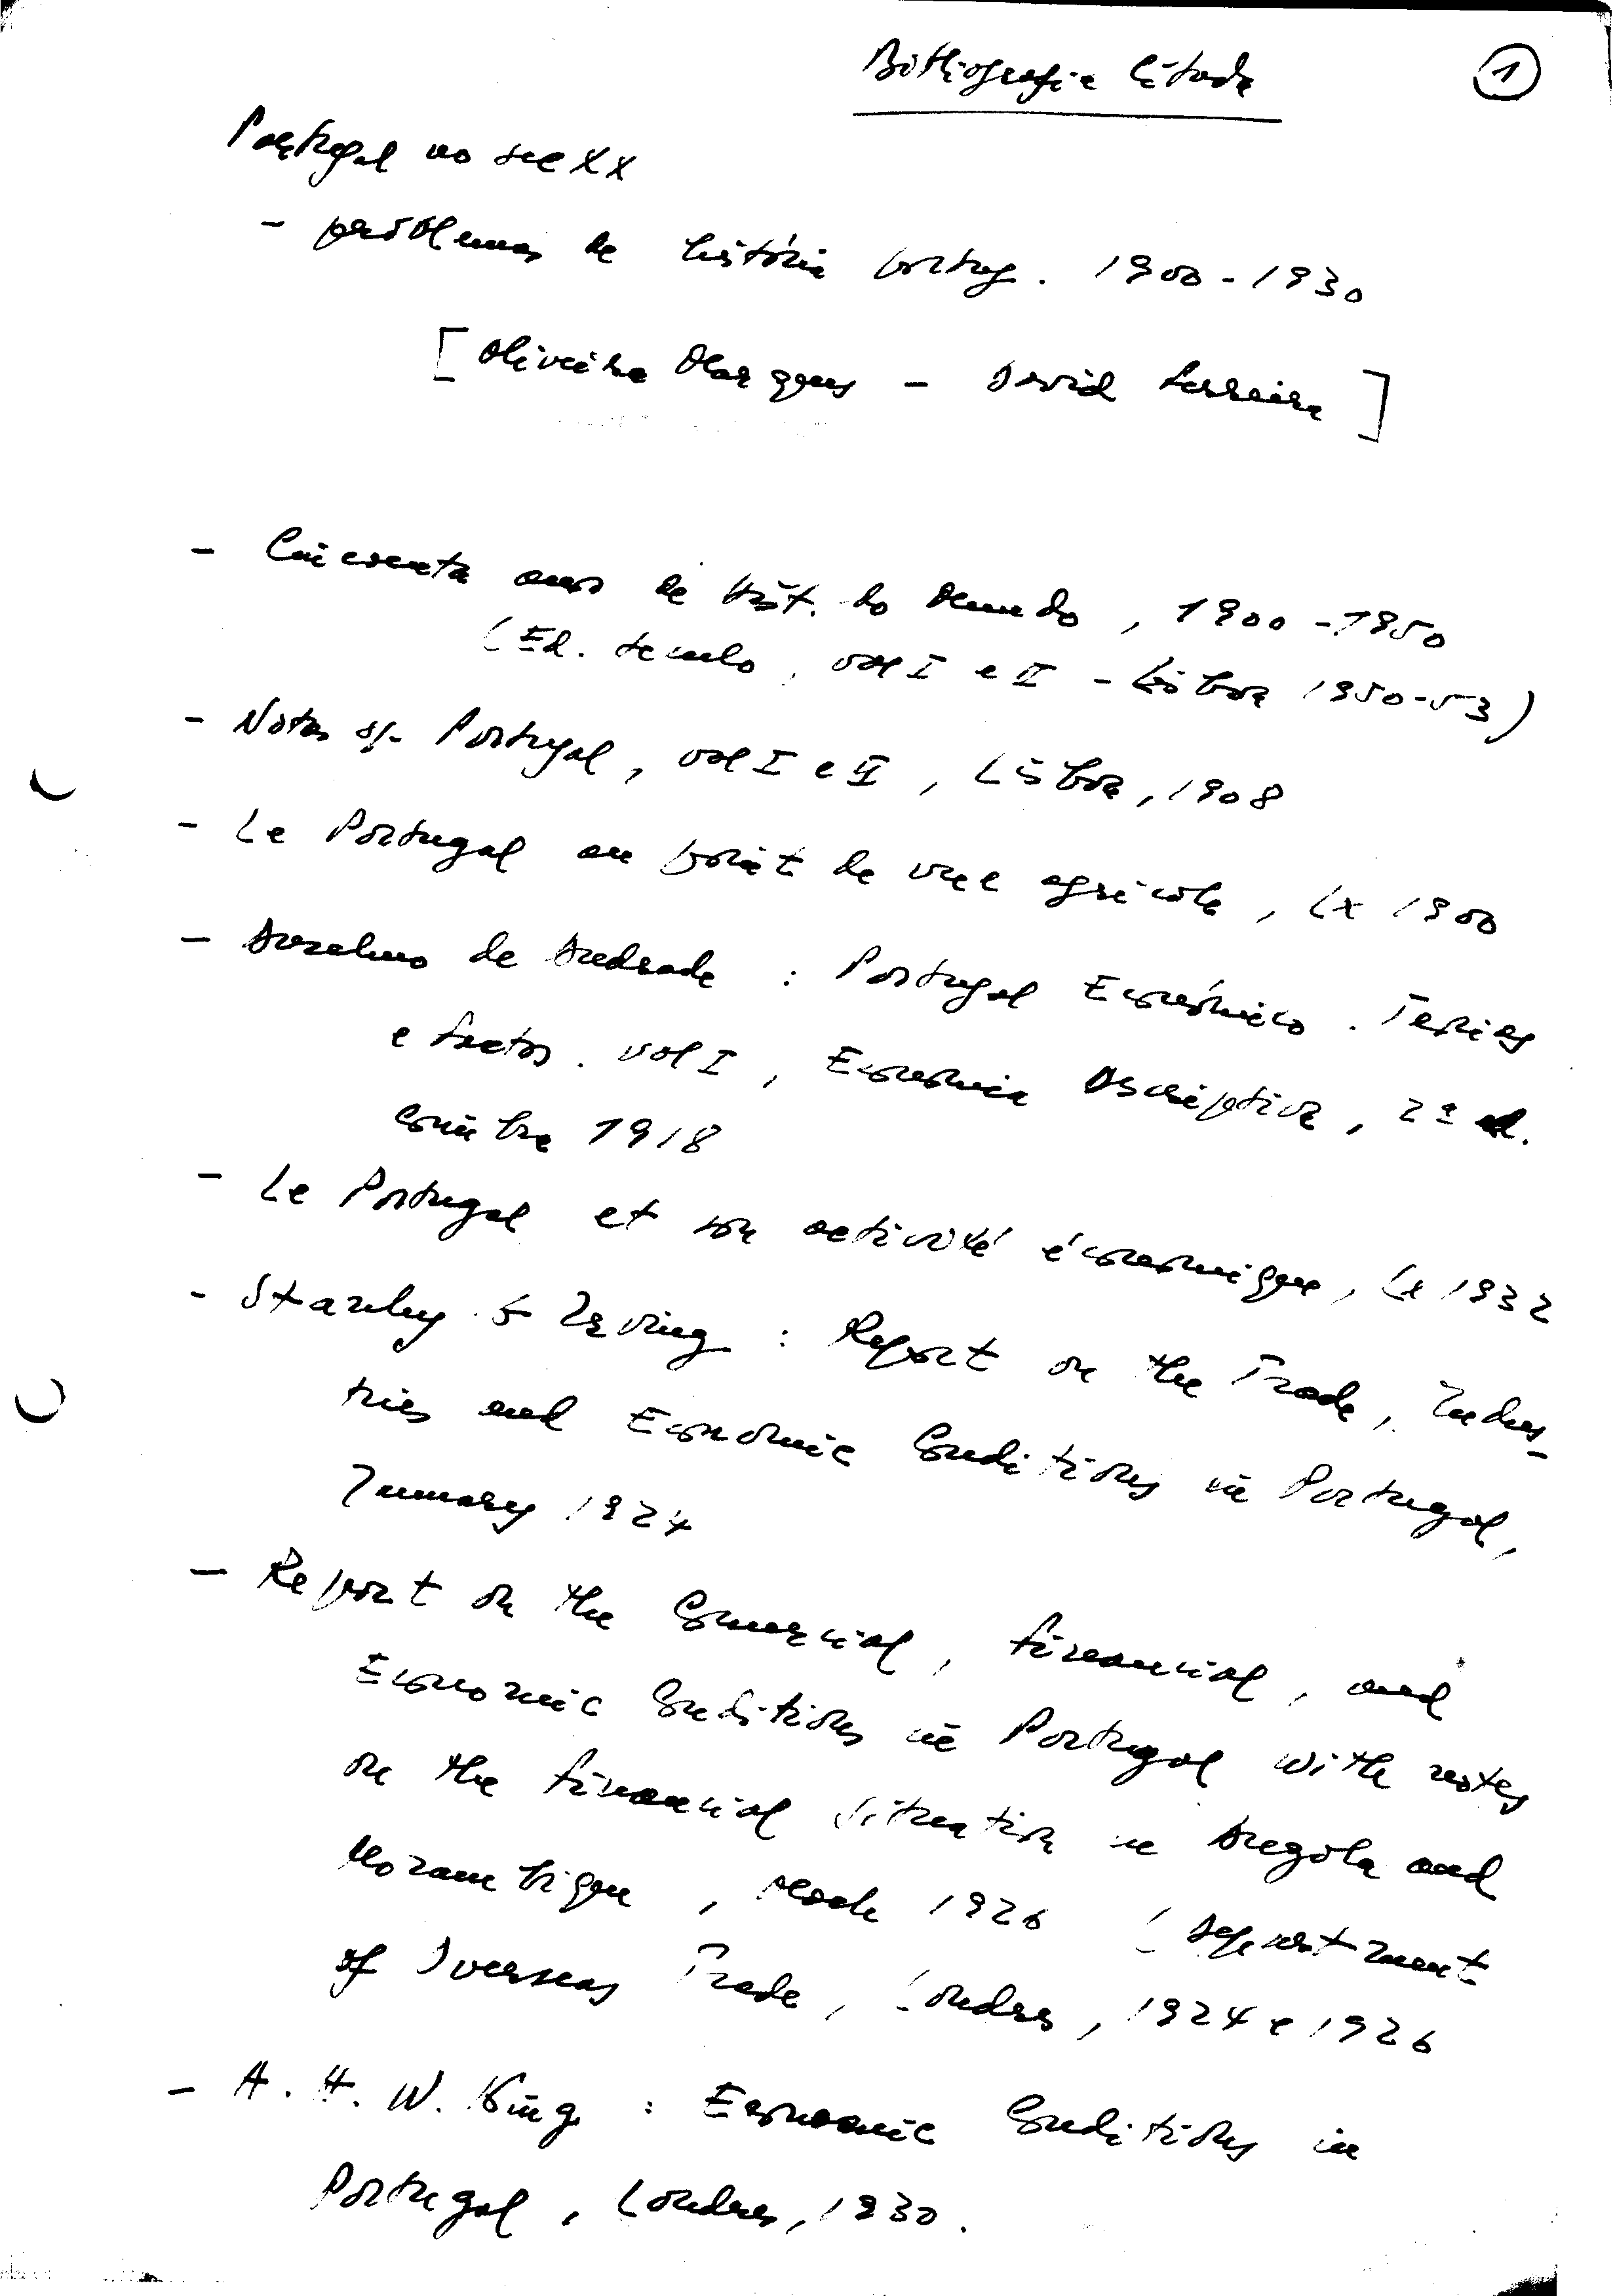 Bibliografia Citada
1
Portugal no sec XX
- problemas de história portug. 1900-1930
[Oliveira Marques - David Ferreira]
- Cincoenta anos de Hist. do Mundo, 1900-1950
(Ed. Seculo, vol I e II - Lisboa 1950-53)
- Notas s/- Portugal, vol I e II, Lisboa, 1908
- Le Portugal au point de vue agricole, Lx 1900
- Anselmo de Andrade : Portugal Económico. Teorias
e factos. vol I, Economia Descriptiva, 2ª ed.
Coimbra 1918
- Le Portugal et son activité économique, Lx 1932
- Stanley G Irving : Report on the Trade, Indus-
tries and Economic Conditions in Portugal,
January 1924
- Report on the Commercial, financial, and
Economic Conditions in Portugal with notes
on the financial situation in Angola and
Mozambique, 1926 (Department
of Overseas Trade, Londres, 1924 e 1926
- A. H. W. King : Economic Conditions in
Portugal, Londres, 1930.